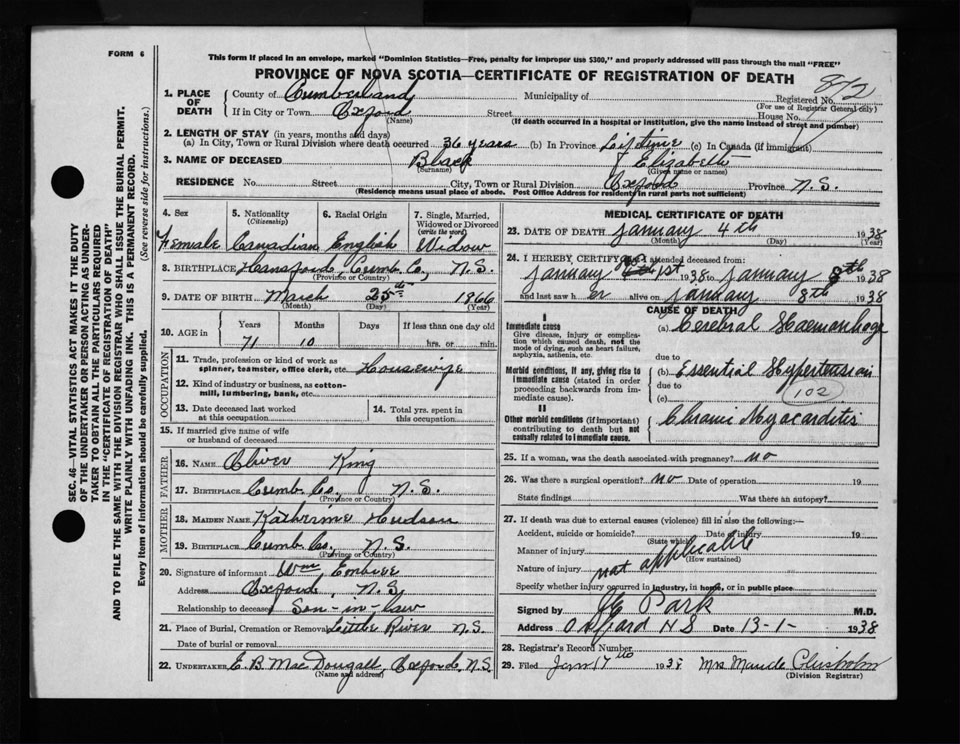 FORM 6
This form if placed in an envelope, marked "Dominion Statistics—Free, penalty for improper use $300," and properly addressed will pass through the mail "FREE"
PROVINCE OF NOVA SCOTIA—CERTIFICATE OF REGISTRATION OF DEATH
872
SEC. 46—VITAL STATISTICS ACT MAKES IT THE DUTY
OF THE UNDERTAKER OR PERSON ACTING AS UNDER-
TAKER TO OBTAIN ALL THE PARTICULARS REQUIRED
IN THE "CERTIFICATE OF REGISTRATION OF DEATH"
AND TO FILE THE SAME WITH THE DIVISION REGISTRAR WHO SHALL ISSUE THE BURIAL PERMIT.
WRITE PLAINLY WITH UNFADING INK. THIS IS A PERMANENT RECORD.
Every item of information should be carefully supplied. (See reverse side for instructions.)
1. PLACE OF DEATH
County of Cumberland Municipality of Registered No.
(For use of Registrar General only)
If in City or Town Oxford Street House No.
(Name) (If death occurred in a hospital or institution, give the name instead of street and number)
2. LENGTH OF STAY (in years, months and days)
(a) In City, Town or Rural Division where death occurred 36 years (b) In Province Lifetime (c) In Canada (if immigrant)
3. NAME OF DECEASED Black Elizabeth
(Surname) (Given name or names)
RESIDENCE No. Street City, Town or Rural Division Oxford Province N.S.
(Residence means usual place of abode. Post Office Address for residents in rural parts not sufficient)
4. Sex 5. Nationality 6. Racial Origin 7. Single, Married,
(Citizenship) Widowed or Divorced
(write the word)
Female Canadian English Widow
8. BIRTHPLACE Hansford, Cumb. Co, N.S.
(Province or Country)
9. DATE OF BIRTH March 25th 1866
(Month) (Day) (Year)
10. AGE in Years Months Days If less than one day old
71 10 hrs. or min.
OCCUPATION
11. Trade, profession or kind of work as
spinner, teamster, office clerk, etc. Housewife
12. Kind of industry or business, as cotton-
mill, lumbering, bank, etc.
13. Date deceased last worked
at this occupation
14. Total yrs. spent in
this occupation
15. If married give name of wife
or husband of deceased
FATHER
16. NAME Oliver King
17. BIRTHPLACE Cumb. Co, N.S.
(Province or Country)
MOTHER
18. MAIDEN NAME Katherine Hudson
19. BIRTHPLACE Cumb. Co. N.S.
(Province or Country)
20. Signature of informant Wm Embree
Address Oxford, N.S.
Relationship to deceased Son-in-law
21. Place of Burial, Cremation or Removal Little River N.S.
Date of burial or removal
22. UNDERTAKER C. B. MacDougall, Oxford, N.S.
(Name and address)
MEDICAL CERTIFICATE OF DEATH
23. DATE OF DEATH January 4th 1938
(Month) (Day) (Year)
24. I HEREBY CERTIFY that I attended deceased from:
January 1st 1938 to January 8th 1938
and last saw her alive on January 8th 1938
CAUSE OF DEATH
I
Immediate cause
Give disease, injury or complica-
tion which caused death, not the
mode of dying, such as heart failure,
asphyxia, asthenia, etc.
(a) Cerebral Haemorrhage
due to
Morbid conditions, if any, giving rise to
immediate cause (stated in order
proceeding backwards from im-
mediate cause).
(b) Essential Hypertension
due to
(c) 102
II
Other morbid conditions (if important)
contributing to death but not
causally related to immediate cause.
Chronic Myocarditis
25. If a woman, was the death associated with pregnancy? no
26. Was there a surgical operation? no Date of operation 19
State findings Was there an autopsy?
27. If death was due to external causes (violence) fill in also the following:—
Accident, suicide or homicide? Date of injury 19
(State which)
Manner of injury
(How sustained)
Nature of injury not applicable
Specify whether injury occurred in industry, in home, or in public place
Signed by Park M.D.
Address Oxford N S Date 13-1- 1938
28. Registrar's Record Number
29. Filed Jan 17th 1938 Mrs Maude Chisholm
(Division Registrar)